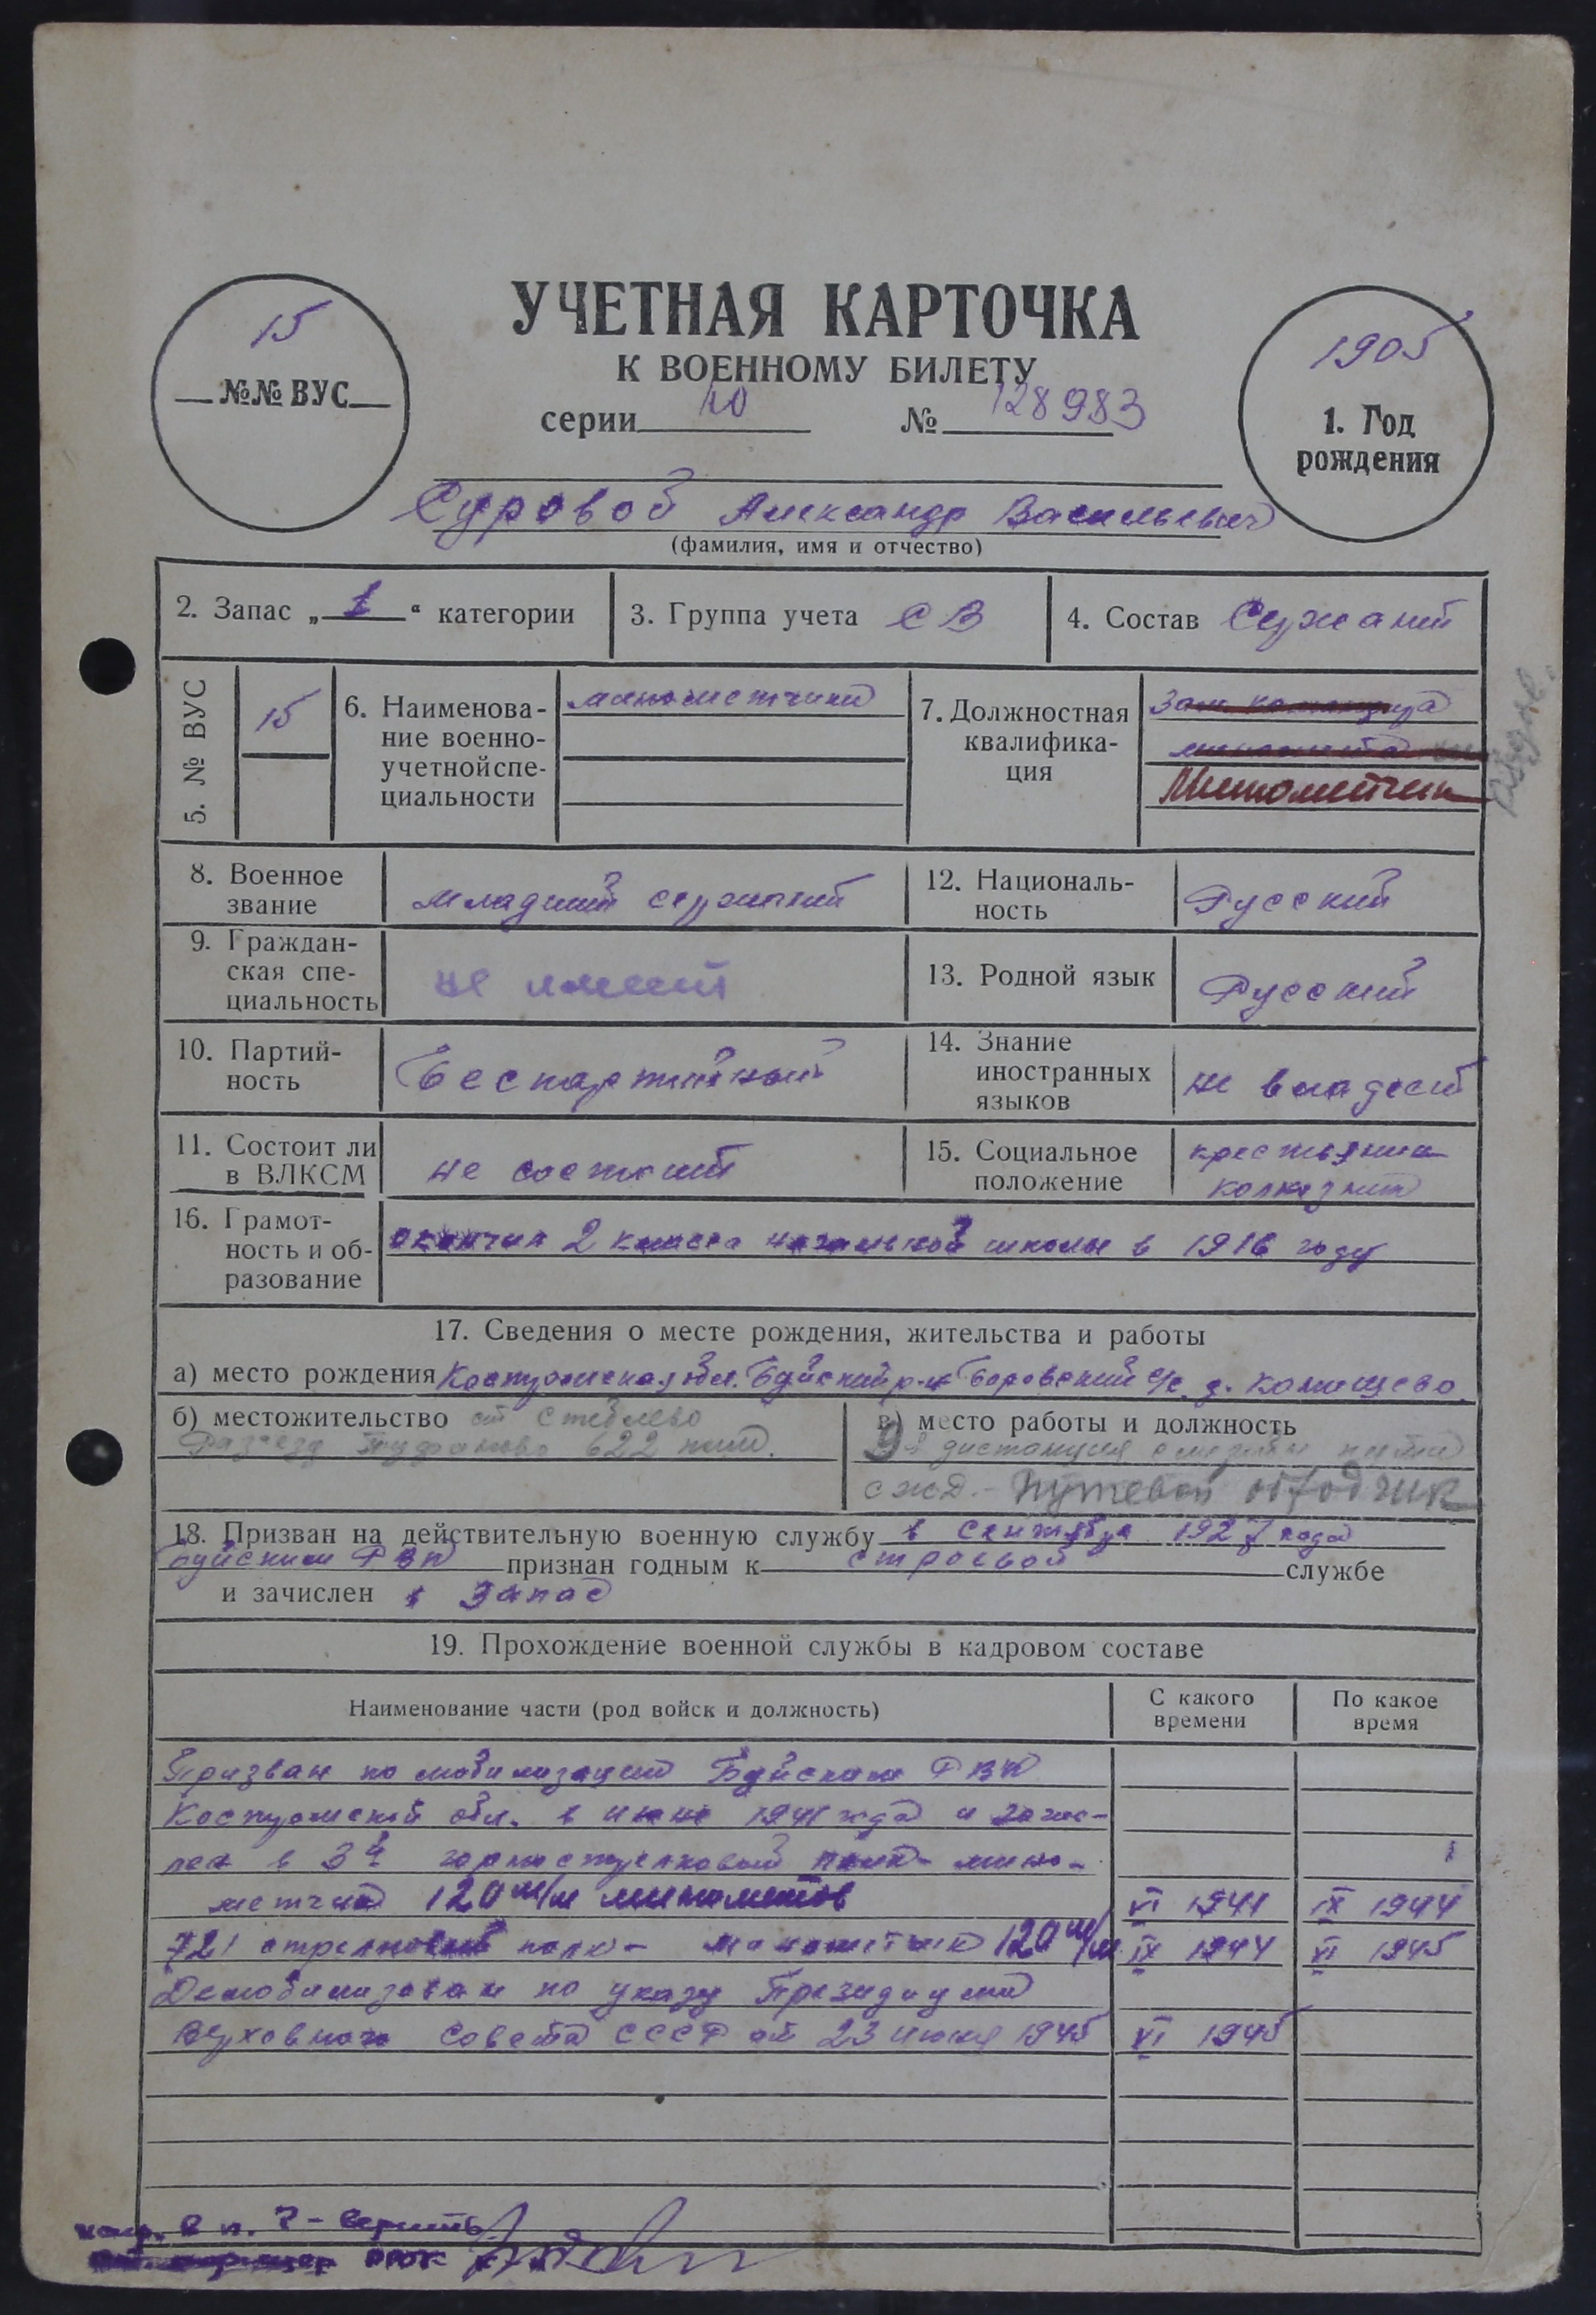 УЧЕТНАЯ КАРТОЧКА
К ВОЕННОМУ БИЛЕТУ
серии Ю № 128983
15
№№ ВУС
1905
1. Год
рождения
Суровов Александр Васильевич
(фамилия, имя и отчество)
2. Запас „1“ категории
3. Группа учета СВ
4. Состав Сержант
5. № ВУС
15
6. Наименова-
ние военно-
учетной спе-
циальности
минометчики
7. Должностная
квалифика-
ция
Зам. командира
миномета
Минометчик
8. Военное
звание
младший сержант
12. Националь-
ность
Русский
9. Граждан-
ская спе-
циальность
не имеет
13. Родной язык
Русский
10. Партий-
ность
Беспартийный
14. Знание
иностранных
языков
не владеет
11. Состоит ли
в ВЛКСМ
не состоит
15. Социальное
положение
крестьянин
колхозник
16. Грамот-
ность и об-
разование
окончил 2 класса начальной школы в 1916 году
17. Сведения о месте рождения, жительства и работы
а) место рождения Костромская обл. Буйский р-н Боровский с/с. д. Комищево
б) местожительство ст Стеблево
Разъезд 622 км.
в) место работы и должность
9я дистанция службы пути
с ж.д. - путевой обходчик
18. Призван на действительную военную службу в сентябре 1927 года
Буйским РВК признан годным к строевой службе
и зачислен в запас
19. Прохождение военной службы в кадровом составе
Наименование части (род войск и должность)
С какого
времени
По какое
время
Призван по мобилизации Буйским РВК
Костромской обл. в июне 1941 года и зачис-
лен в 3й горнострелковый полк - мино-
метчик 120 м/м минометов VI 1941 IX 1944
721 стрелковый полк - минометчик 120 м/м IX 1944 VI 1945
Демобилизован по указу Президиума
Верховного Совета СССР от 23 июня 1945 VI 1945
испр. в п. 7 - верить